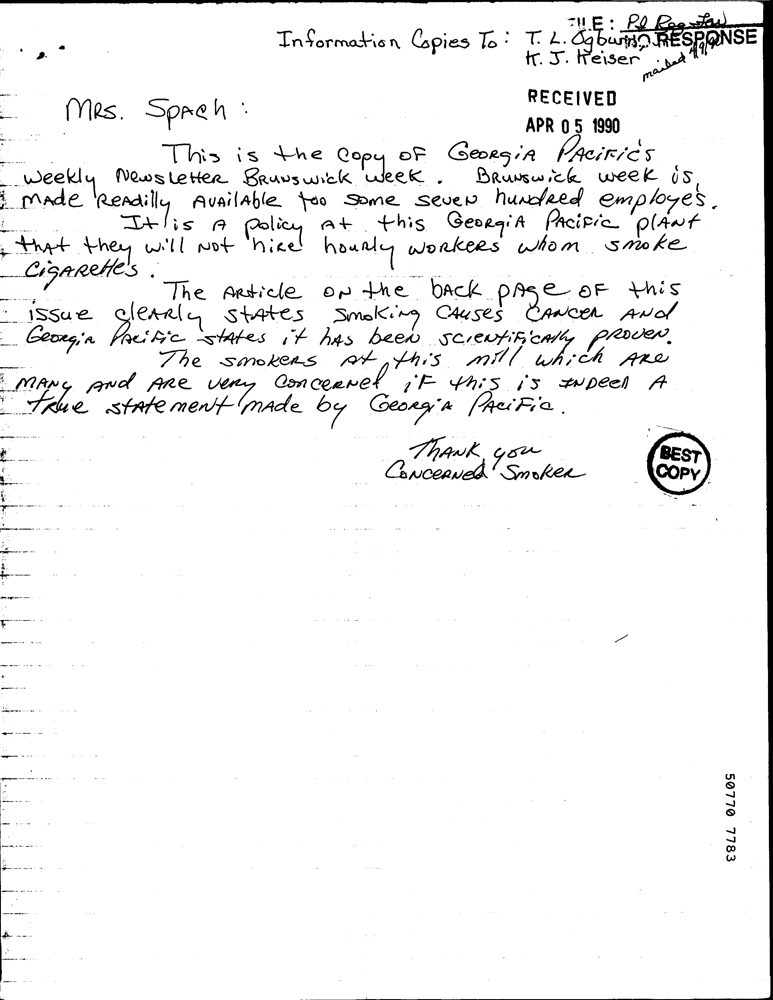 FILE: Pl Reg
Information Copies To: T. L. Ogburn NO RESPONSE
K. J. Keiser mailed
RECEIVED
APR 05 1990
MRS. Spach:
This is the copy OF GEORGIA PACIFIC'S
weekly Newsletter BRUNSWICK week. BRUNSWICK week is
MADE READilly AVAilAble too some seven hundred employe's.
It is A policy At this GEORGIA PACIFIC plANT
thAt they will Not hire hourly workers whom smoke
CigARette's.
The ARticle ON the bAck pAge OF this
issue cleARly stAtes Smoking CAuses CANCER ANd
Georgia Pacific stAtes it hAs been scientificAlly pRoveN.
The smokers At this mill which ARe
MANy ANd ARe very Concerned iF this is INDeed A
True stAtement mAde by GeorgiA PAcific.
ThANK you
CONCERNed Smoker
BEST
COPY
50770 7783